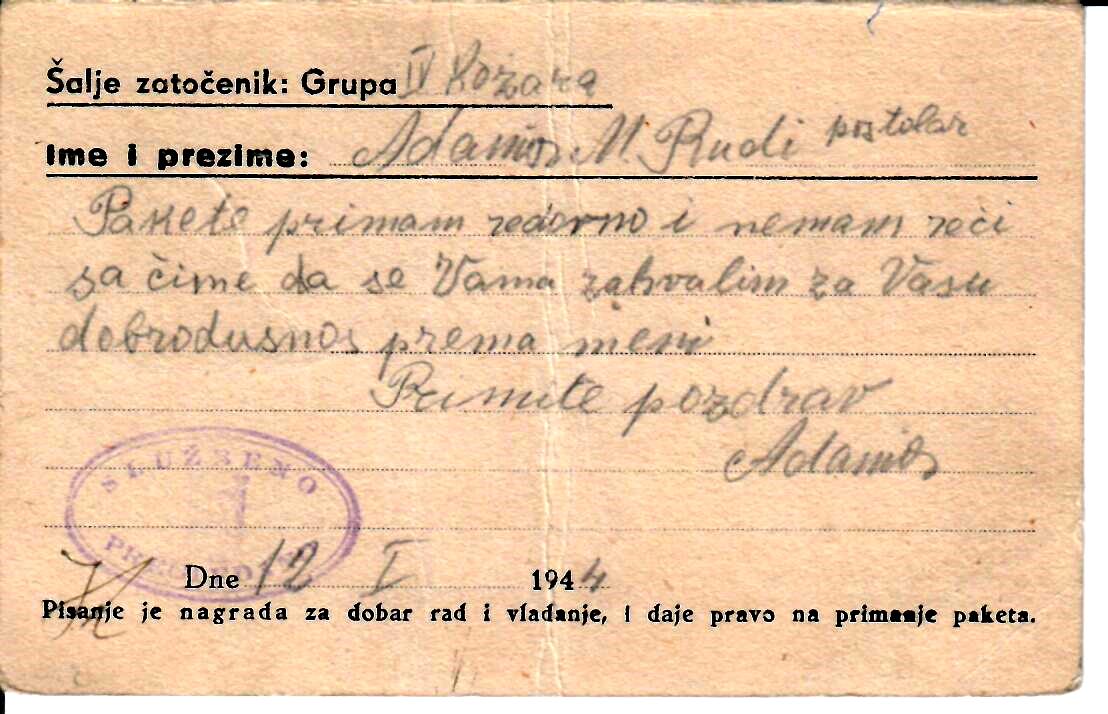 Šalje zatočenik: Grupa IV Kožara
Ime i prezime: Adamos M. Rudi postolar
Pakete primam redovno i nemam reći
sa čime da se Vama zahvalim za Vasu
dobrodusnos prema meni
Primite pozdrav
Adamos
SLUŽBENO
Dne 12 I 1944
Pisanje je nagrada za dobar rad i vladanje, i daje pravo na primanje paketa.